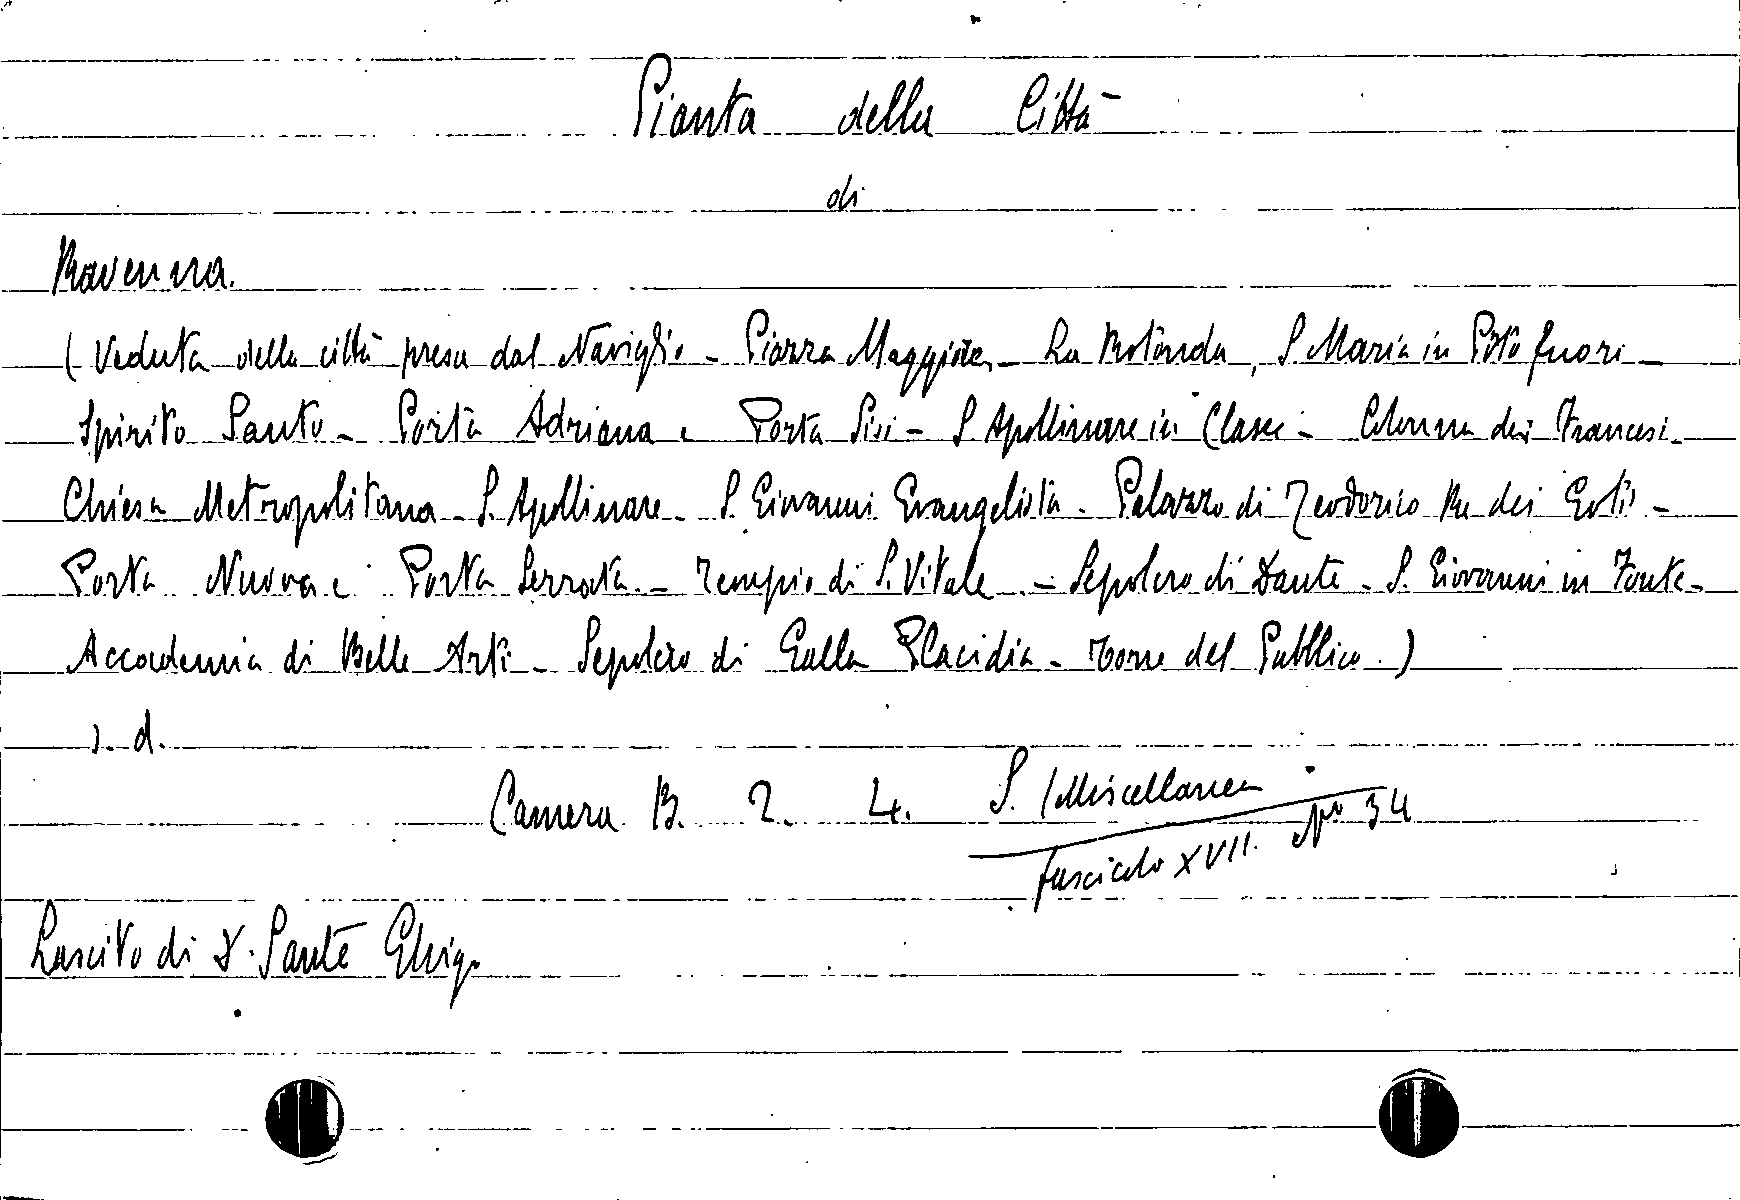 Pianta della Città
di
Ravenna.
( Veduta della città presa dal Naviglio - Piazza Maggiore - La Rotonda, S. Maria in Porto fuori -
Spirito Santo - Porta Adriana e Porta Sisi - S. Apollinare in Classe - Colonna dei Francesi -
Chiesa Metropolitana - S. Apollinare - S. Giovanni Evangelista - Palazzo di Teodorico Re dei Goti -
Porta Nuova e Porta Serrata - Tempio di S. Vitale - Sepolcro di Dante - S. Giovanni in Fonte -
Accademia di Belle Arti - Sepolcro di Galla Placidia - Torre del Pubblico )
s. d.
Camera B. 2. 4. S. Miscellanea
fascicolo XVII. No 34
Lascito di D. Sante Ghigi